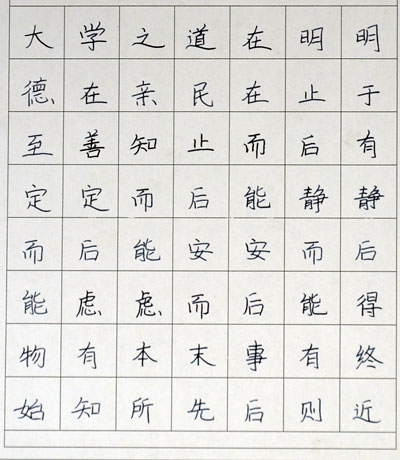 大学之道在明明
德在亲民在止于
至善知止而后有
定定而后能静静
而后能安安而后
能虑虑而后能得
物有本末事有终
始知所先后则近